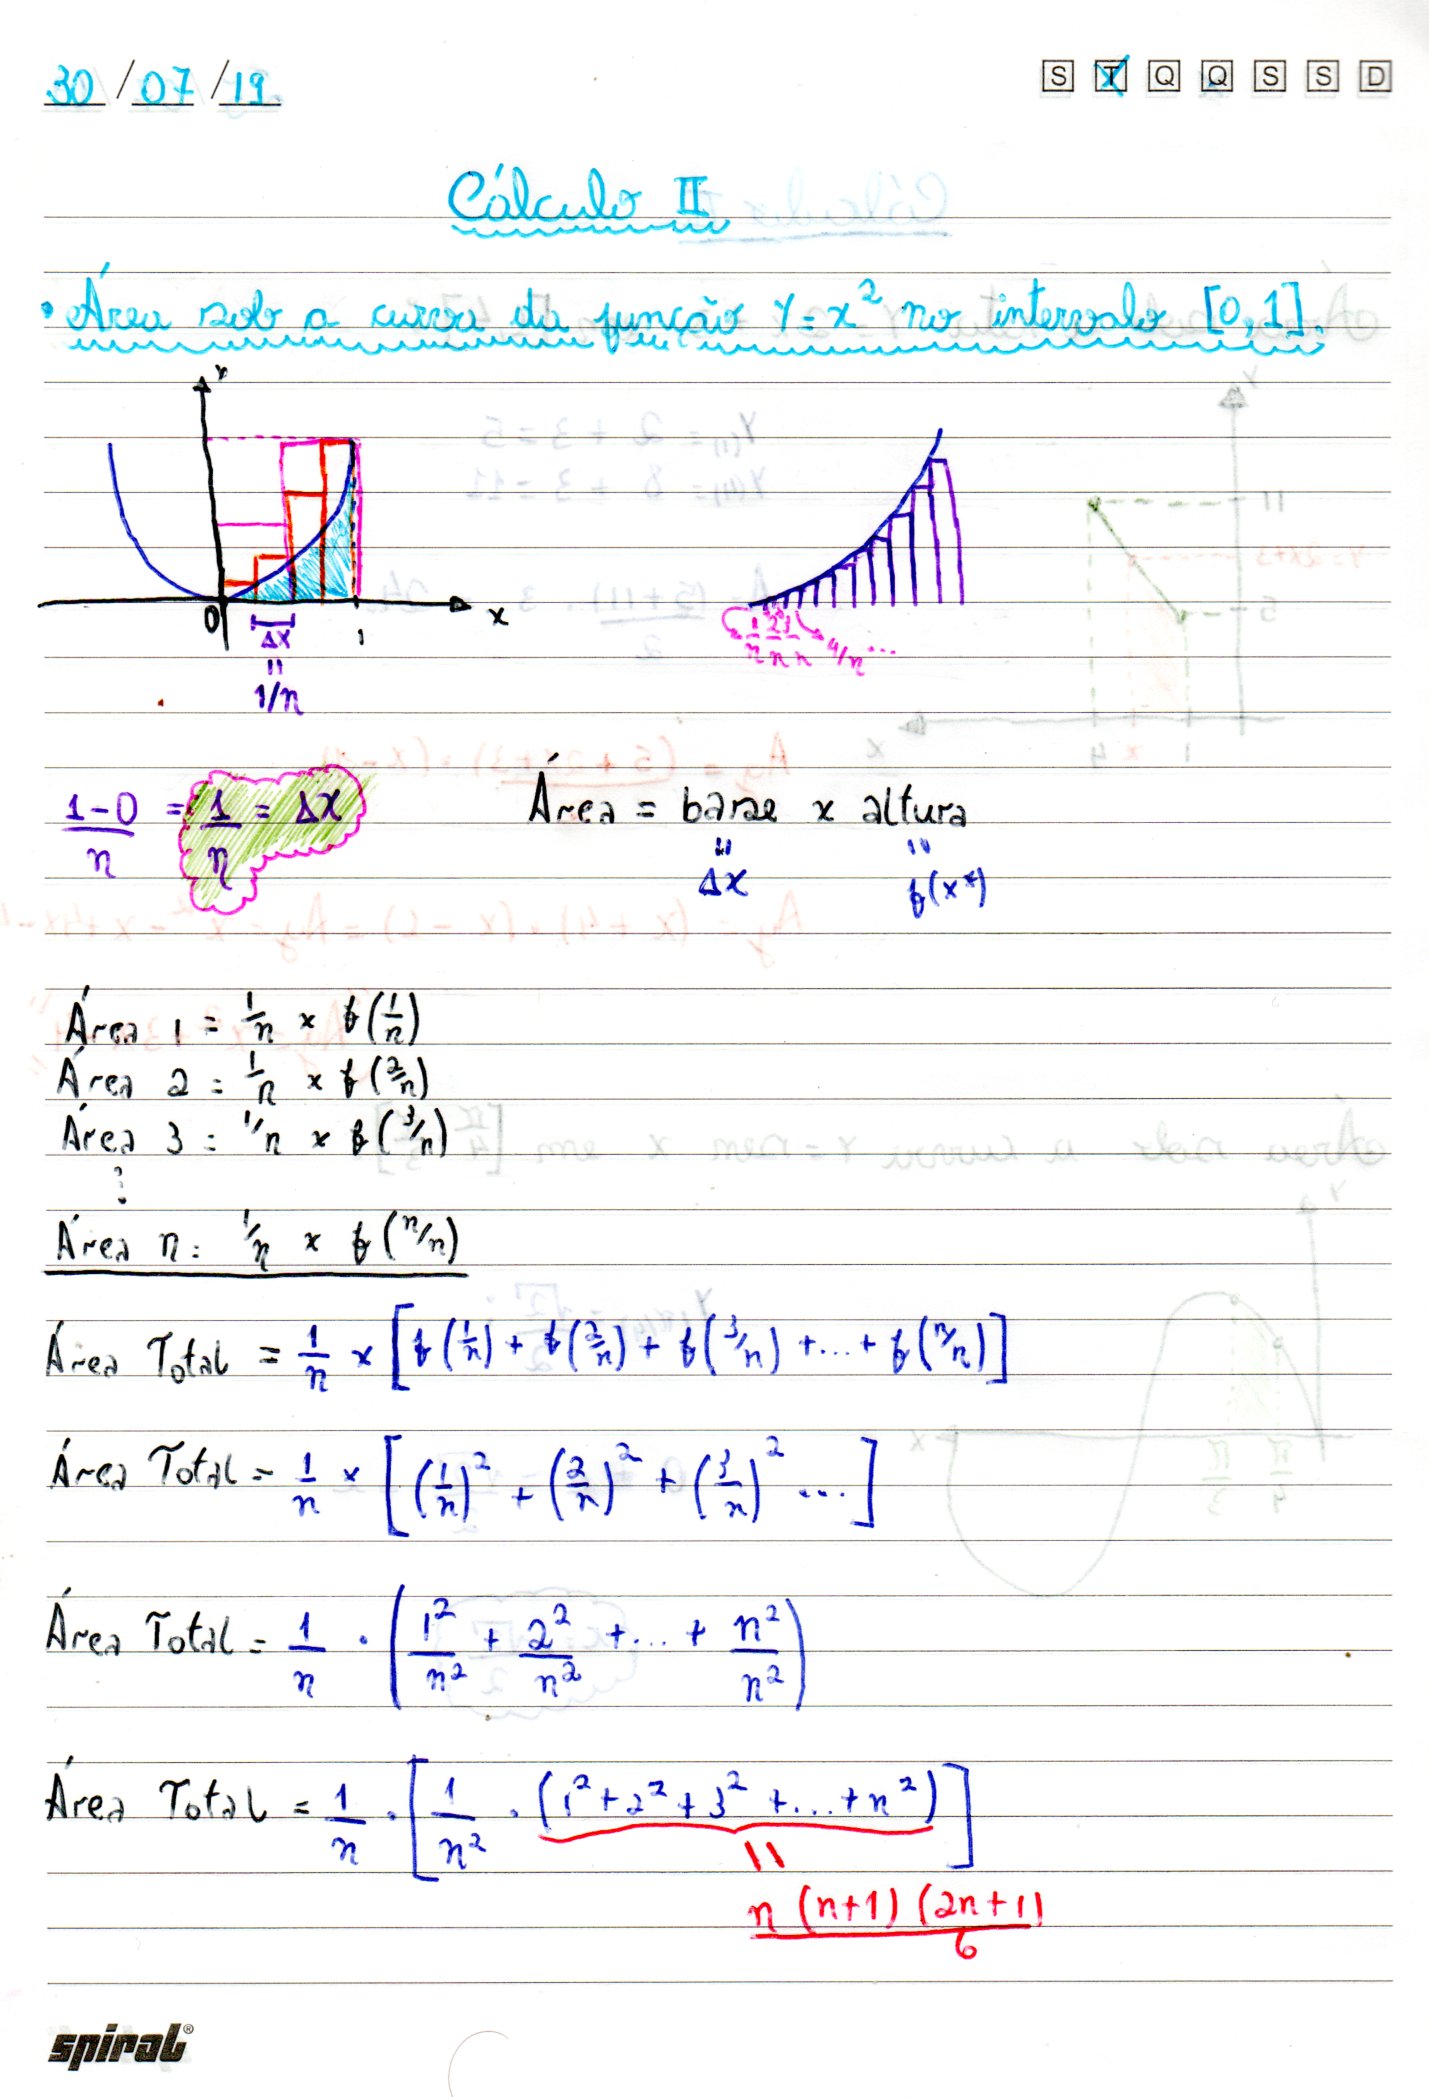 30/07/19 S T Q Q S S D
Cálculo II
• Área sob a curva da função Y = x² no intervalo [0,1].
Y
0 1 x
Δx
=
1/n
1/n 2/n 3/n 4/n ...
(1-0)/n = 1/n = Δx
Área = base x altura
= =
Δx f(x*)
Área 1 = 1/n x f(1/n)
Área 2 = 1/n x f(2/n)
Área 3 = 1/n x f(3/n)
⋮
Área n = 1/n x f(n/n)
Área Total = 1/n x [f(1/n) + f(2/n) + f(3/n) + ... + f(n/n)]
Área Total = 1/n x [(1/n)² + (2/n)² + (3/n)² ...]
Área Total = 1/n · (1²/n² + 2²/n² + ... + n²/n²)
Área Total = 1/n · [1/n² · (1² + 2² + 3² + ... + n²)]
=
n (n+1) (2n+1)
6
spiral®